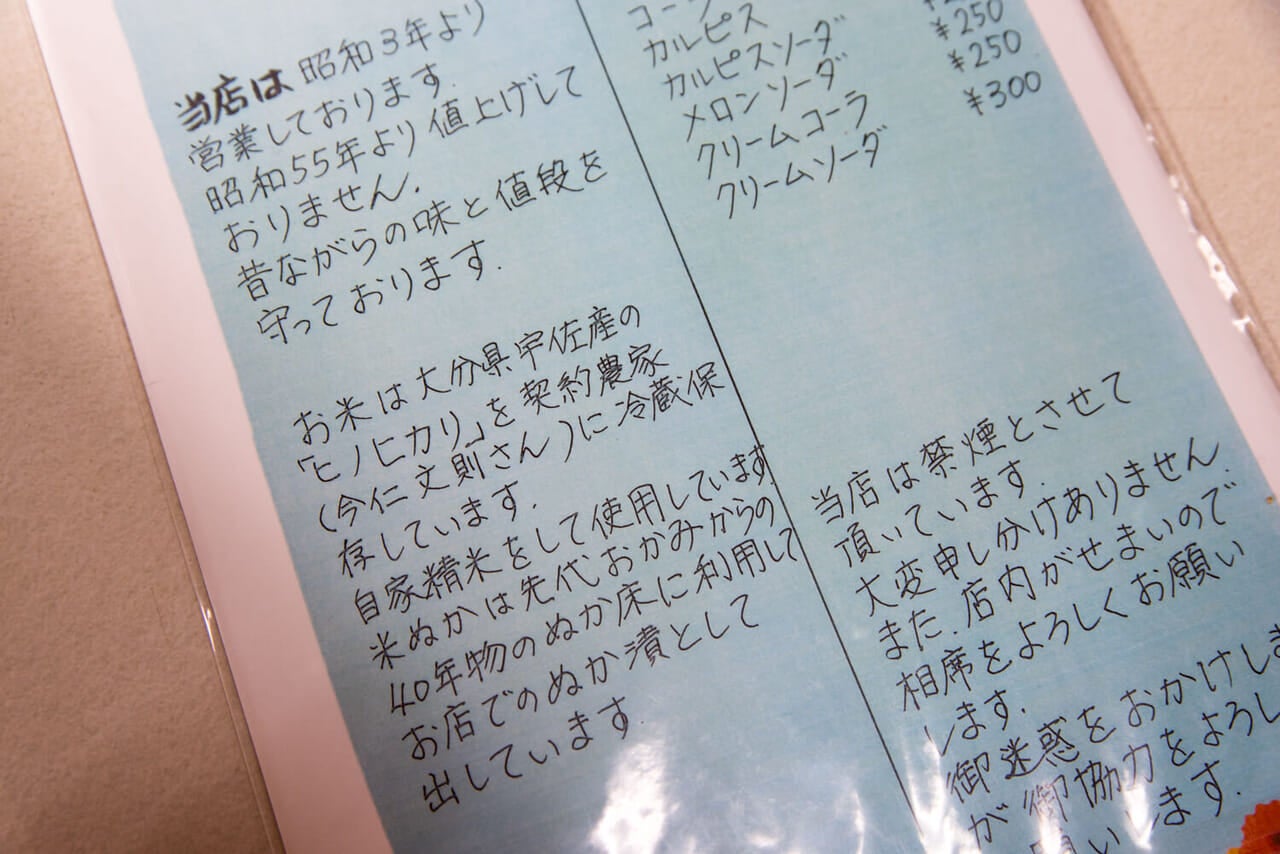 当店は昭和3年より
営業しております.
昭和55年より値上げして
おりません.
昔ながらの味と値段を
守っております.
お米は大分県宇佐産の
「ヒノヒカリ」を契約農家
(今仁文則さん)に冷蔵保
存しています.
自家精米をして使用しています.
米ぬかは先代おかみからの
40年物のぬか床に利用して
お店でのぬか漬として
出しています.
カルピス
カルピスソーダ ¥250
メロンソーダ ¥250
クリームコーラ
クリームソーダ ¥300
当店は禁煙とさせて
頂いています.
大変申し分けありません.
また.店内がせまいので
相席をよろしくお願い
します.
御迷惑をおかけしま
が御協力をよろし
いします.